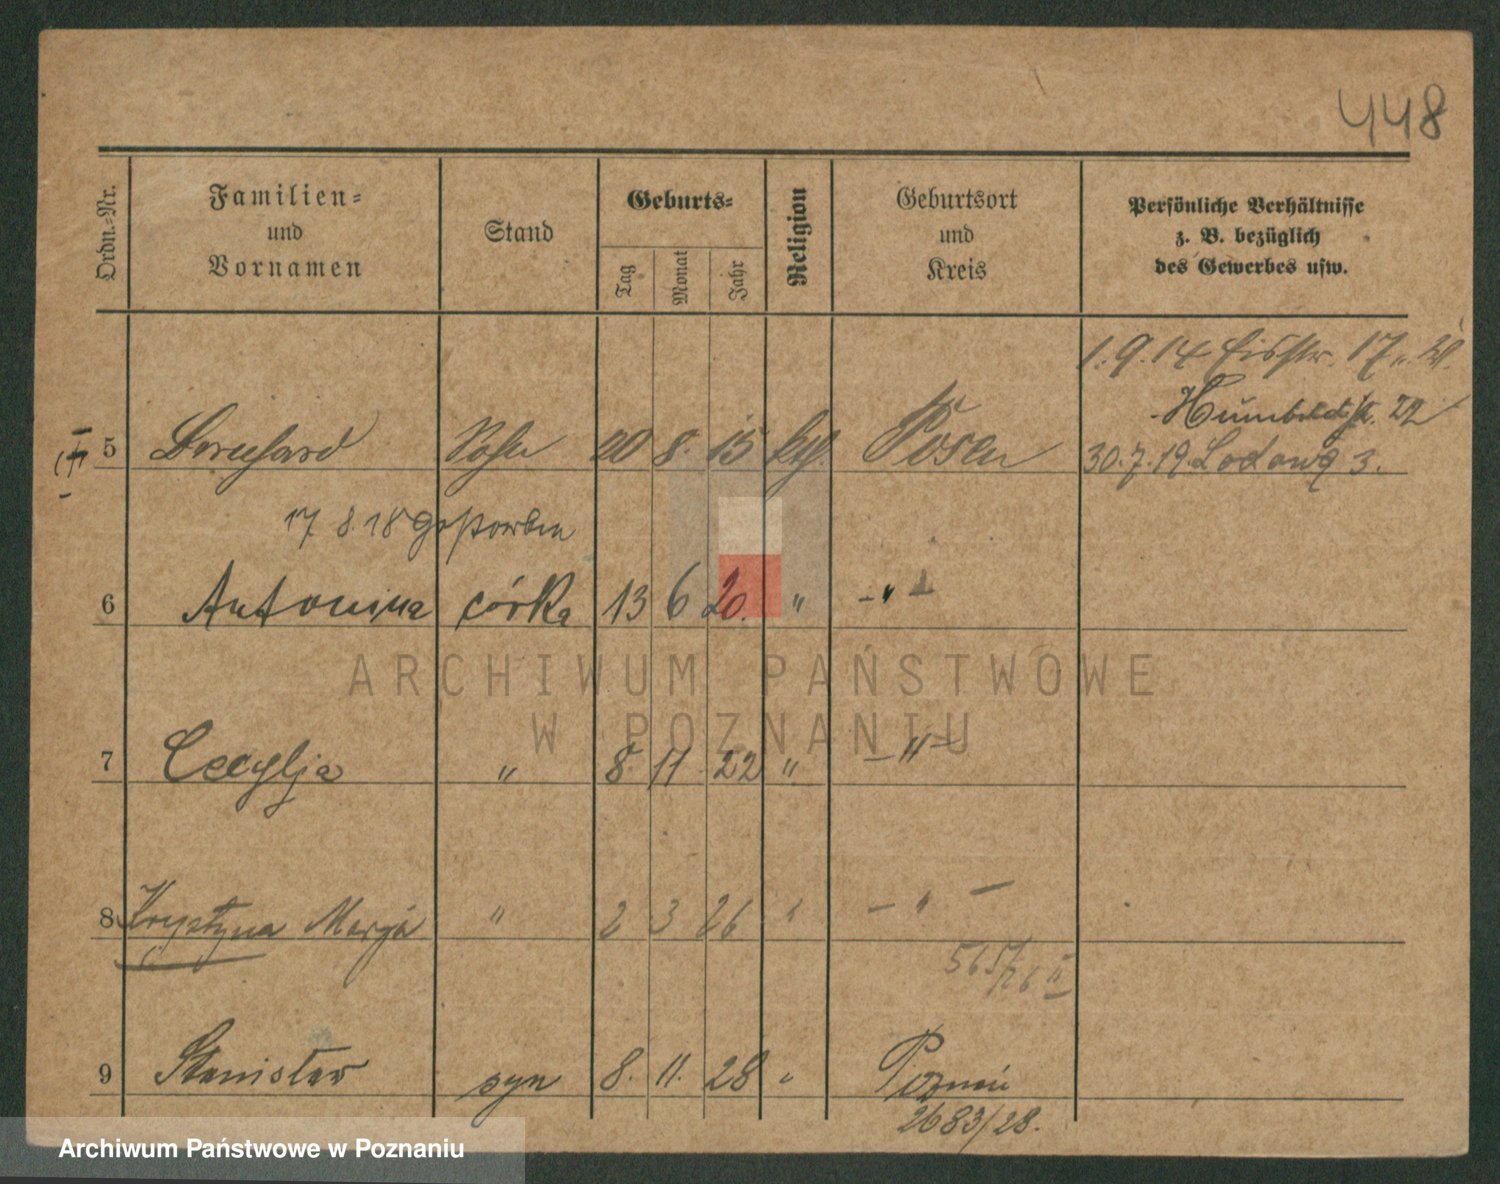 448
Ordn.-Nr.
Familien-
und
Vornamen
Stand
Geburts-
Tag
Monat
Jahr
Religion
Geburtsort
und
Kreis
Persönliche Verhältnisse
z. B. bezüglich
des Gewerbes usw.
1.9.14 Eisstr. 17
Humboldtstr. 22
5 Bernhard Sohn 20 8. 15 kth. Posen 30.7.19. Lodowa 3.
17. 8. 18 gestorben
6 Antonina córka 13 6 20. " - " -
ARCHIWUM PAŃSTWOWE
W POZNANIU
7 Cecylja " 8. 11 22 " - " -
8 Krystyna Marja " 2 3 26 " - " -
5657/26 II
9 Stanisław syn 8. 11. 28 " Poznań
2683/28.
Archiwum Państwowe w Poznaniu